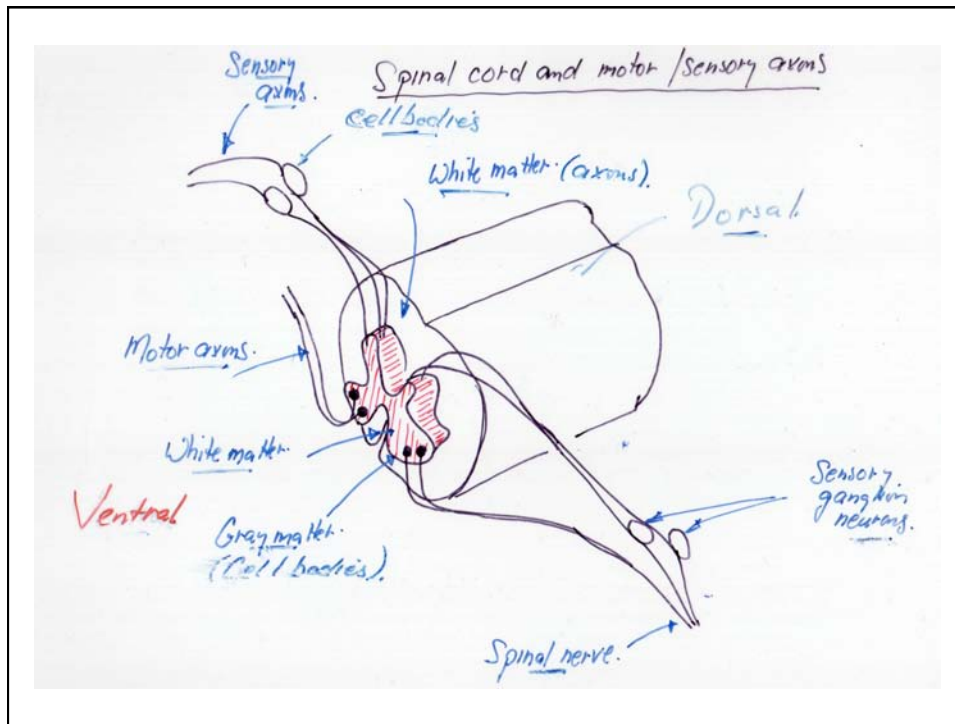 Spinal cord and motor/sensory axons
Sensory
axons.
Cell bodies
White matter. (axons).
Dorsal.
Motor axons.
White matter.
Ventral
Gray matter.
(Cell bodies).
Sensory
ganglion
neurons.
Spinal nerve.